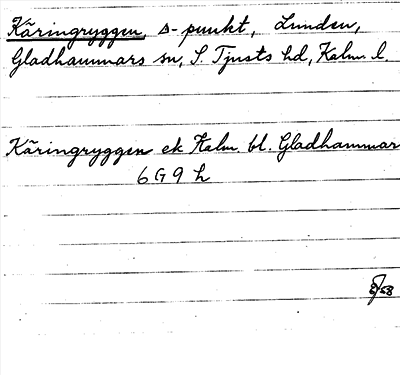 Käringryggen, Δ-punkt, Lunden,
Gladhammars sn, S. Tjusts hd, Kalm. l.
Käringryggen ek Kalm. bl. Gladhammar
6 G 9 h